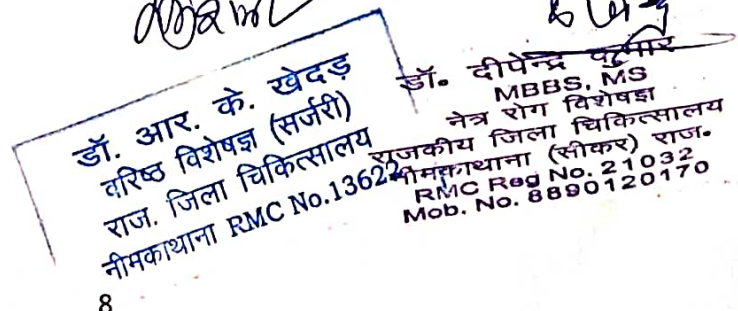 डॉ. आर. के. खेदड़
वरिष्ठ विशेषज्ञ (सर्जरी)
राज. जिला चिकित्सालय
नीमकाथाना RMC No.13622
डॉ. दीपेन्द्र
MBBS, MS
नेत्र रोग विशेषज्ञ
राजकीय जिला चिकित्सालय
नीमकाथाना (सीकर) राज.
RMC Reg No. 21032
Mob. No. 8890120170
8